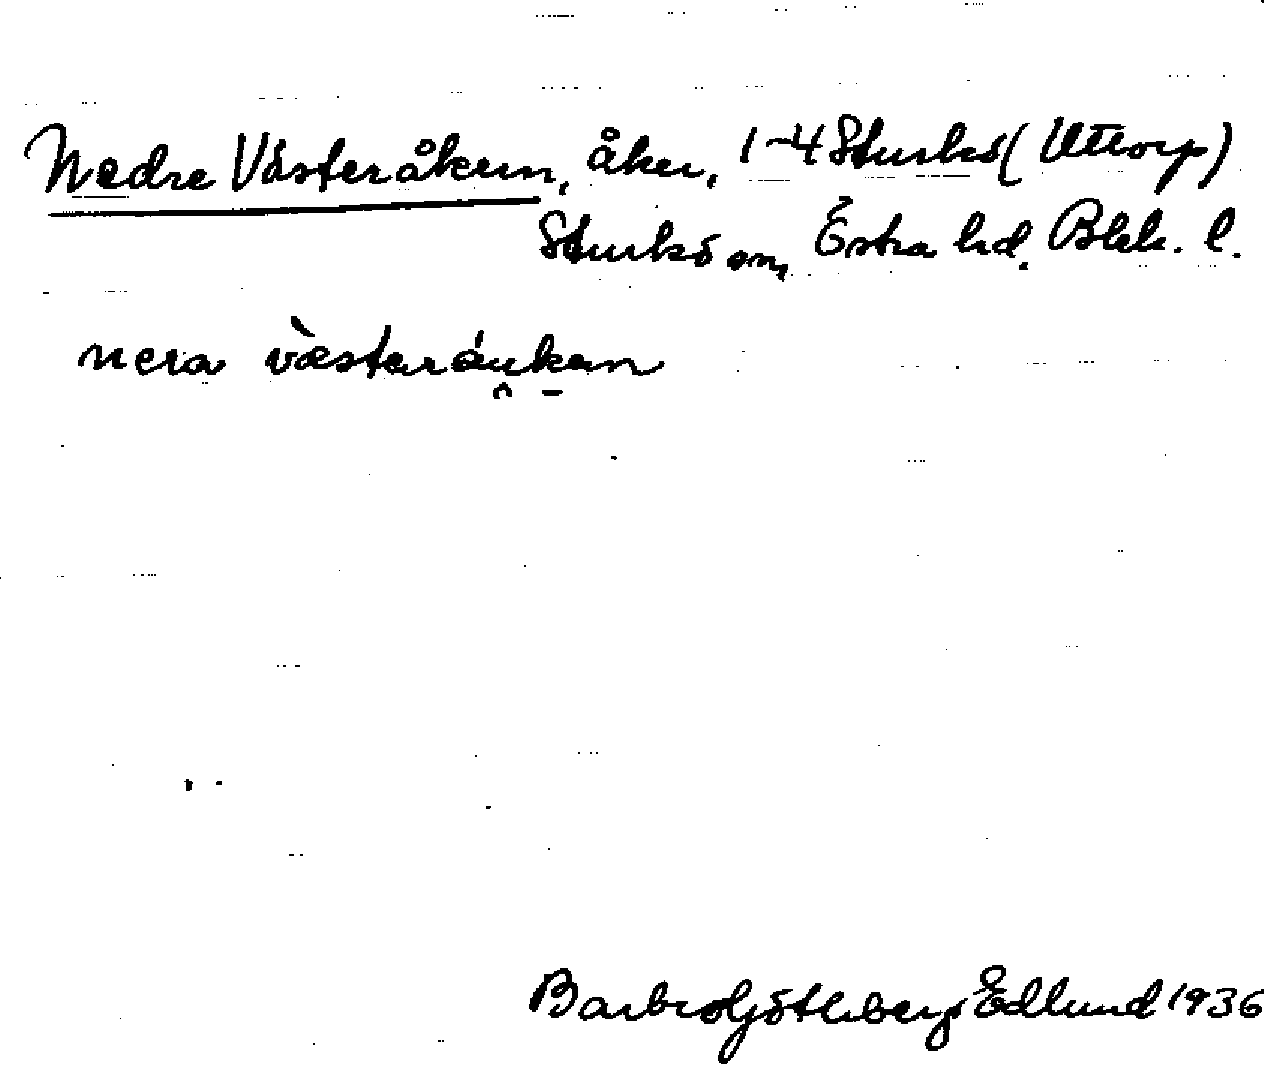 Nedre Västeråkern, åker, 1-4 Sturkö (Uttorp)
Sturkö sn, Östra hd. Blek. l.
nera vàsteráukaṇ
Barbro Götheberg Edlund 1936